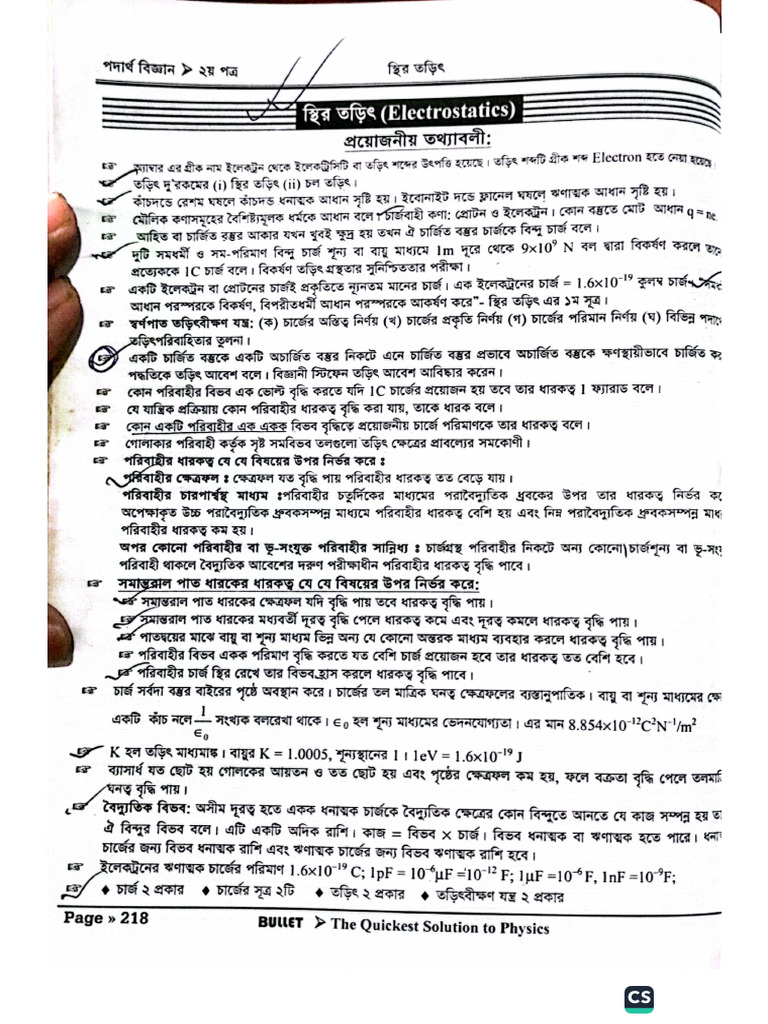 পদার্থ বিজ্ঞান ➤ ২য় পত্র
স্থির তড়িৎ
স্থির তড়িৎ (Electrostatics)
প্রয়োজনীয় তথ্যাবলী:
☞ অ্যাম্বার এর গ্রীক নাম ইলেকট্রন থেকে ইলেকট্রিসিটি বা তড়িৎ শব্দের উৎপত্তি হয়েছে। তড়িৎ শব্দটি গ্রীক শব্দ Electron হতে নেয়া হয়েছে
☞ তড়িৎ দু'রকমের (i) স্থির তড়িৎ (ii) চল তড়িৎ।
☞ কাঁচদন্ডে রেশম ঘষলে কাঁচদন্ড ধনাত্মক আধান সৃষ্টি হয়। ইবোনাইট দন্ডে ফ্লানেল ঘষলে ঋণাত্মক আধান সৃষ্টি হয়।
☞ মৌলিক কণাসমূহের বৈশিষ্ট্যমূলক ধর্মকে আধান বলে। চার্জবাহী কণা: প্রোটন ও ইলেকট্রন। কোন বস্তুতে মোট আধান q = ne
☞ আহিত বা চার্জিত বস্তুর আকার যখন খুবই ক্ষুদ্র হয় তখন ঐ চার্জিত বস্তুর চার্জকে বিন্দু চার্জ বলে।
☞ দুটি সমধর্মী ও সম-পরিমাণ বিন্দু চার্জ শূন্য বা বায়ু মাধ্যমে 1m দূরে থেকে 9×10⁹ N বল দ্বারা বিকর্ষণ করলে
প্রত্যেককে 1C চার্জ বলে। বিকর্ষণ তড়িৎ গ্রস্থতার সুনিশ্চিততার পরীক্ষা।
☞ একটি ইলেকট্রন বা প্রোটনের চার্জই প্রকৃতিতে ন্যূনতম মানের চার্জ। এক ইলেকট্রনের চার্জ = 1.6×10⁻¹⁹ কুলম্ব চার্জ।
আধান পরস্পরকে বিকর্ষণ, বিপরীতধর্মী আধান পরস্পরকে আকর্ষণ করে”- স্থির তড়িৎ এর ১ম সূত্র।
☞ স্বর্ণপাত তড়িৎবীক্ষণ যন্ত্র: (ক) চার্জের অস্তিত্ব নির্ণয় (খ) চার্জের প্রকৃতি নির্ণয় (গ) চার্জের পরিমান নির্ণয় (ঘ) বিভিন্ন
তড়িৎপরিবাহিতার তুলনা।
☞ একটি চার্জিত বস্তুকে একটি অচার্জিত বস্তুর নিকটে এনে চার্জিত বস্তুর প্রভাবে অচার্জিত বস্তুকে ক্ষণস্থায়ীভাবে চার্জিত
পদ্ধতিকে তড়িৎ আবেশ বলে। বিজ্ঞানী স্টিফেন তড়িৎ আবেশ আবিষ্কার করেন।
☞ কোন পরিবাহীর বিভব এক ভোল্ট বৃদ্ধি করতে যদি 1C চার্জের প্রয়োজন হয় তবে তার ধারকত্ব 1 ফ্যারাড বলে।
☞ যে যান্ত্রিক প্রক্রিয়ায় কোন পরিবাহীর ধারকত্ব বৃদ্ধি করা যায়, তাকে ধারক বলে।
☞ কোন একটি পরিবাহীর এক একক বিভব বৃদ্ধিতে প্রয়োজনীয় চার্জে পরিমাণকে তার ধারকত্ব বলে।
☞ গোলাকার পরিবাহী কর্তৃক সৃষ্ট সমবিভব তলগুলো তড়িৎ ক্ষেত্রের প্রাবল্যের সমকোণী।
☞ পরিবাহীর ধারকত্ব যে যে বিষয়ের উপর নির্ভর করে :
পরিবাহীর ক্ষেত্রফল : ক্ষেত্রফল যত বৃদ্ধি পায় পরিবাহীর ধারকত্ব তত বেড়ে যায়।
পরিবাহীর চারপার্শ্বস্থ মাধ্যম :পরিবাহীর চতুর্দিকের মাধ্যমের পরাবৈদ্যুতিক ধ্রুবকের উপর তার ধারকত্ব নির্ভর
অপেক্ষাকৃত উচ্চ পরাবৈদ্যুতিক ধ্রুবকসম্পন্ন মাধ্যমে পরিবাহীর ধারকত্ব বেশি হয় এবং নিম্ন পরাবৈদ্যুতিক ধ্রুবকসম্পন্ন
পরিবাহীর ধারকত্ব কম হয়।
অপর কোনো পরিবাহীর বা ভূ-সংযুক্ত পরিবাহীর সান্নিধ্য : চার্জগ্রস্থ পরিবাহীর নিকটে অন্য কোনো চার্জশূন্য বা
পরিবাহী থাকলে বৈদ্যুতিক আবেশের দরুণ পরীক্ষাধীন পরিবাহীর ধারকত্ব বৃদ্ধি পাবে।
☞ সমান্তরাল পাত ধারকের ধারকত্ব যে যে বিষয়ের উপর নির্ভর করে:
☞ সমান্তরাল পাত ধারকের ক্ষেত্রফল যদি বৃদ্ধি পায় তবে ধারকত্ব বৃদ্ধি পায়।
☞ সমান্তরাল পাত ধারকের মধ্যবর্তী দূরত্ব বৃদ্ধি পেলে ধারকত্ব কমে এবং দূরত্ব কমলে ধারকত্ব বৃদ্ধি পায়।
☞ পাতদ্বয়ের মাঝে বায়ু বা শূন্য মাধ্যম ভিন্ন অন্য যে কোনো অন্তরক মাধ্যম ব্যবহার করলে ধারকত্ব বৃদ্ধি পায়।
☞ পরিবাহীর বিভব একক পরিমাণ বৃদ্ধি করতে যত বেশি চার্জ প্রয়োজন হবে তার ধারকত্ব তত বেশি হবে।
☞ পরিবাহীর চার্জ স্থির রেখে তার বিভব হ্রাস করলে ধারকত্ব বৃদ্ধি পাবে।
☞ চার্জ সর্বদা বস্তুর বাইরের পৃষ্ঠে অবস্থান করে। চার্জের তল মাত্রিক ঘনত্ব ক্ষেত্রফলের ব্যস্তানুপাতিক। বায়ু বা শূন্য মাধ্যমের
একটি কাঁচ নলে 1/∈₀ সংখ্যক বলরেখা থাকে। ∈₀ হল শূন্য মাধ্যমের ভেদনযোগ্যতা। এর মান 8.854×10⁻¹²C²N⁻¹/m²
☞ K হল তড়িৎ মাধ্যমাঙ্ক। বায়ুর K = 1.0005, শূন্যস্থানের 1। 1eV = 1.6×10⁻¹⁹ J
☞ ব্যাসার্ধ যত ছোট হয় গোলকের আয়তন ও তত ছোট হয় এবং পৃষ্ঠের ক্ষেত্রফল কম হয়, ফলে বক্রতা বৃদ্ধি পেলে
ঘনত্ব বৃদ্ধি পায়।
☞ বৈদ্যুতিক বিভব: অসীম দূরত্ব হতে একক ধনাত্মক চার্জকে বৈদ্যুতিক ক্ষেত্রের কোন বিন্দুতে আনতে যে কাজ সম্পন্ন হয়
ঐ বিন্দুর বিভব বলে। এটি একটি অদিক রাশি। কাজ = বিভব × চার্জ। বিভব ধনাত্মক বা ঋণাত্মক হতে পারে।
চার্জের জন্য বিভব ধনাত্মক রাশি এবং ঋণাত্মক চার্জের জন্য বিভব ঋণাত্মক রাশি হবে।
☞ ইলেকট্রনের ঋণাত্মক চার্জের পরিমাণ 1.6×10⁻¹⁹ C; 1pF = 10⁻⁶μF =10⁻¹² F; 1μF =10⁻⁶ F, 1nF =10⁻⁹F;
☞ ♦ চার্জ ২ প্রকার ♦ চার্জের সূত্র ২টি ♦ তড়িৎ ২ প্রকার ♦ তড়িৎবীক্ষণ যন্ত্র ২ প্রকার
Page » 218
BULLET ➤ The Quickest Solution to Physics
CS